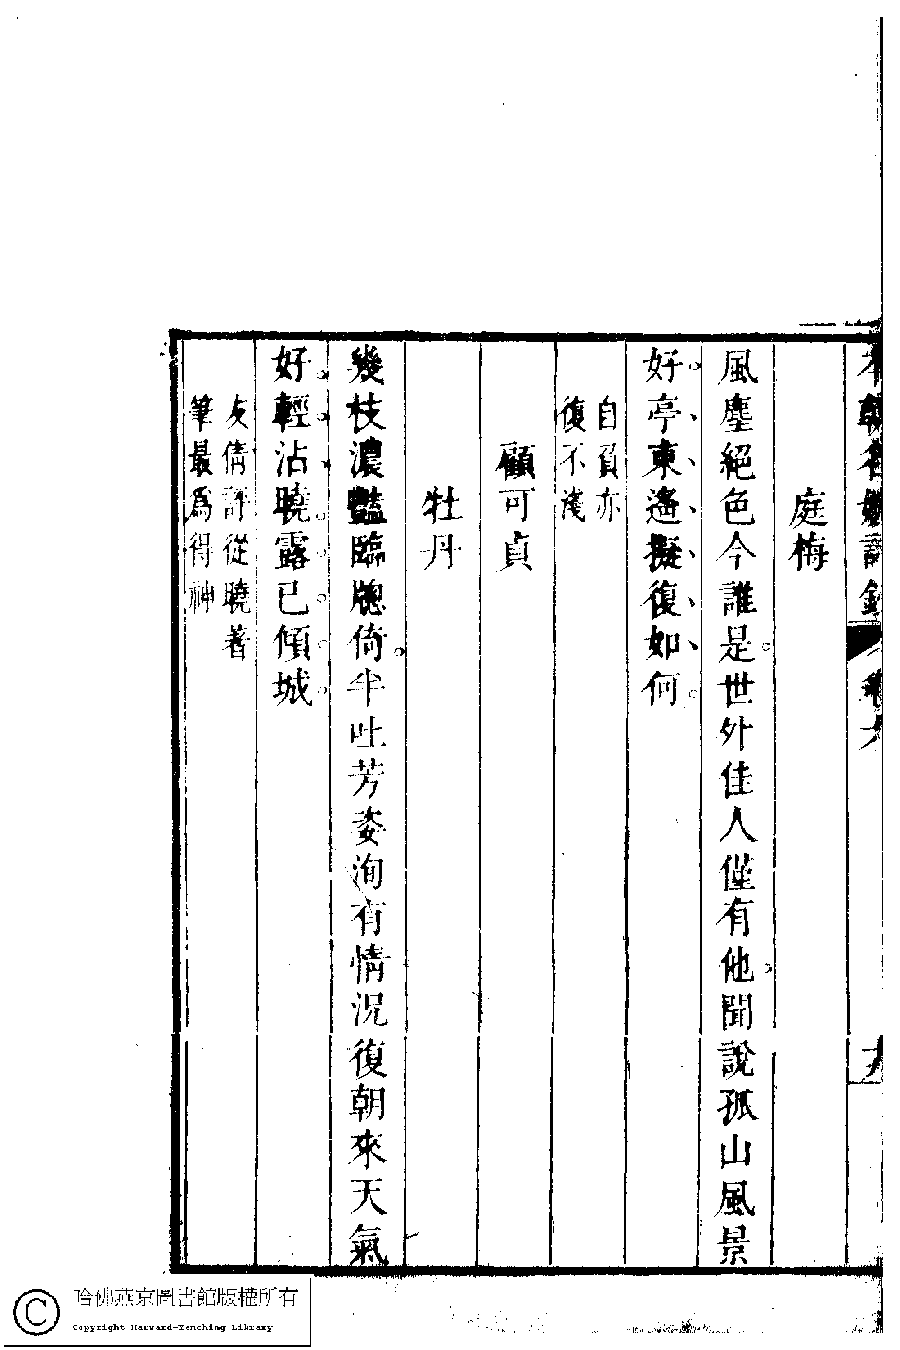 本朝名媛詩鈔 卷六
庭梅
風塵絕色今誰是世外佳人僅有他聞說孤山風景
好亭東遙擬復如何
自負亦
復不淺
顧可貞
牡丹
幾枝濃豔臨牕倚半吐芳姿洵有情況復朝來天氣
好輕沾曉露已傾城
友倩評從曉著
筆最爲得神
哈佛燕京圖書館版權所有
Copyright Harvard-Yenching Library